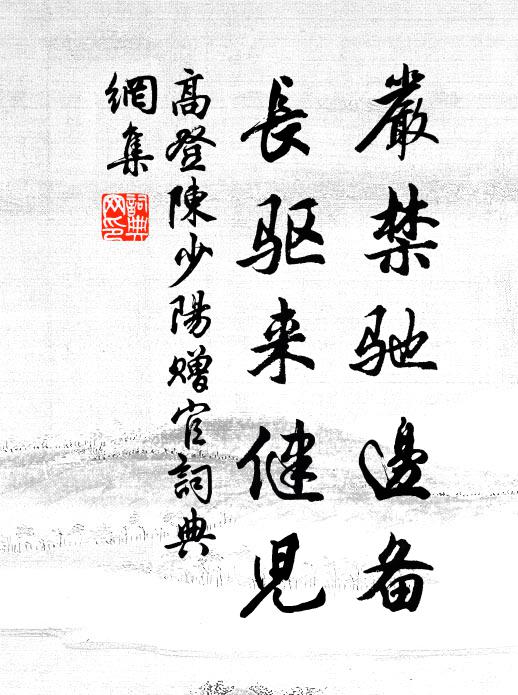 嚴禁馳邊备
長驱来健児
高登陳少陽赠官詞典
網集
詞典
网印